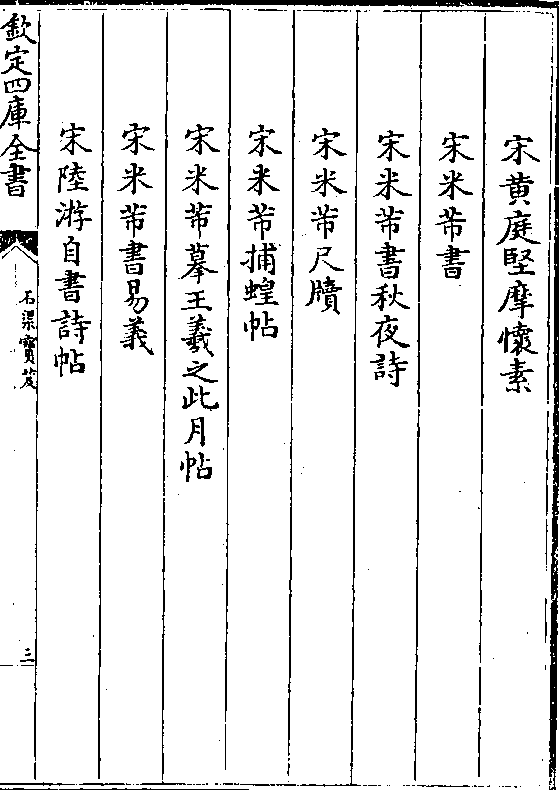 宋黄庭堅摩懷素
宋米芾書
宋米芾書秋夜詩
宋米芾尺牘
宋米芾捕蝗帖
宋米芾摹王羲之此月帖
宋米芾書易義
宋陸游自書詩帖
欽定四庫全書
石渠寶笈
三